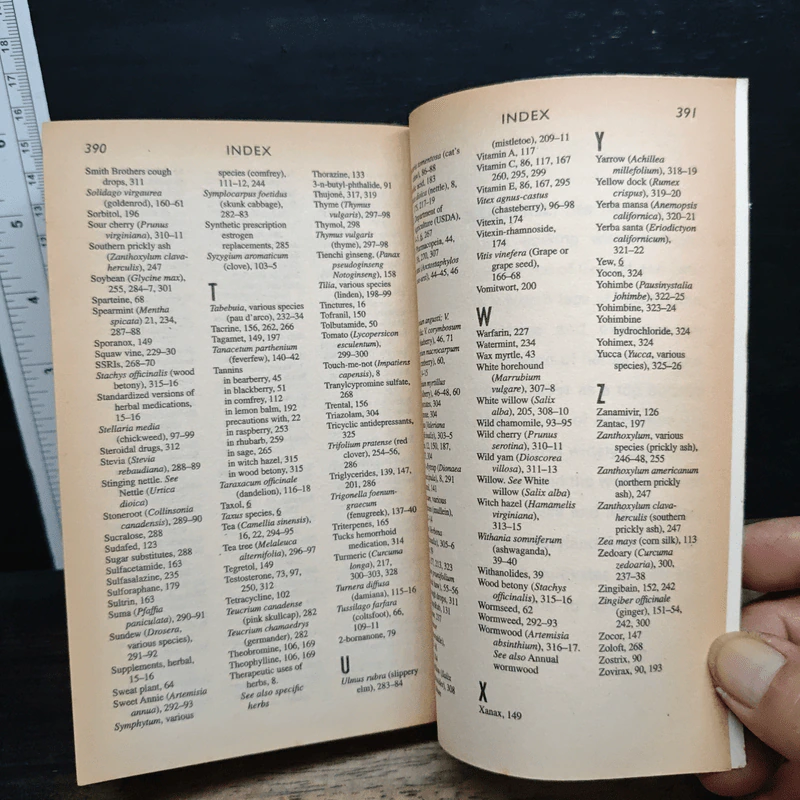 390
INDEX
Smith Brothers cough
drops, 311
Solidago virgaurea
(goldenrod), 160–61
Sorbitol, 196
Sour cherry (Prunus
virginiana), 310–11
Southern prickly ash
(Zanthoxylum clava-
herculis), 247
Soybean (Glycine max),
255, 284–7, 301
Sparteine, 68
Spearmint (Mentha
spicata) 21, 234,
287–88
Sporanox, 149
Squaw vine, 229–30
SSRIs, 268–70
Stachys officinalis (wood
betony), 315–16
Standardized versions of
herbal medications,
15–16
Stellaria media
(chickweed), 97–99
Steroidal drugs, 312
Stevia (Stevia
rebaudiana), 288–89
Stinging nettle. See
Nettle (Urtica
dioica)
Stoneroot (Collinsonia
canadensis), 289–90
Sucralose, 288
Sudafed, 123
Sugar substitutes, 288
Sulfacetamide, 163
Sulfasalazine, 235
Sulforaphane, 179
Sultrin, 163
Suma (Pfaffia
paniculata), 290–91
Sundew (Drosera,
various species),
291–92
Supplements, herbal,
15–16
Sweat plant, 64
Sweet Annie (Artemisia
annua), 292–93
Symphytum, various
species (comfrey),
111–12, 244
Symplocarpus foetidus
(skunk cabbage),
282–83
Synthetic prescription
estrogen
replacements, 285
Syzygium aromaticum
(clove), 103–5
T
Tabebuia, various species
(pau d'arco), 232–34
Tacrine, 156, 262, 266
Tagamet, 149, 197
Tanacetum parthenium
(feverfew), 140–42
Tannins
in bearberry, 45
in blackberry, 51
in comfrey, 112
in lemon balm, 192
precautions with, 22
in raspberry, 253
in rhubarb, 259
in sage, 265
in witch hazel, 315
in wood betony, 315
Taraxacum officinale
(dandelion), 116–18
Taxol, 6
Taxus species, 6
Tea (Camellia sinensis),
16, 22, 294–95
Tea tree (Melaleuca
alternifolia), 296–97
Tegretol, 149
Testosterone, 73, 97,
250, 312
Tetracycline, 102
Teucrium canadense
(pink skullcap), 282
Teucrium chamaedrys
(germander), 282
Theobromine, 106, 169
Theophylline, 106, 169
Therapeutic uses of
herbs, 8.
See also specific
herbs
Thorazine, 133
3-n-butyl-phthalide, 91
Thujone, 317, 319
Thyme (Thymus
vulgaris), 297–98
Thymol, 298
Thymus vulgaris
(thyme), 297–98
Tienchi ginseng, (Panax
pseudoginseng
Notoginseng), 158
Tilia, various species
(linden), 198–99
Tinctures, 16
Tofranil, 150
Tolbutamide, 50
Tomato (Lycopersicon
esculentum),
299–300
Touch-me-not (Impatiens
capensis), 8
Tranylcypromine sulfate,
268
Trental, 156
Triazolam, 304
Tricyclic antidepressants,
325
Trifolium pratense (red
clover), 254–56,
286
Triglycerides, 139, 147,
201, 286
Trigonella foenum-
graecum
(fenugreek), 137–40
Triterpenes, 165
Tucks hemorrhoid
medication, 314
Turmeric (Curcuma
longa), 217,
300–303, 328
Turnera diffusa
(damiana), 115–16
Tussilago farfara
(coltsfoot), 66,
109–11
2-bornanone, 79
U
Ulmus rubra (slippery
elm), 283–84
INDEX
391
tomentosa (cat's
(mistletoe), 209–11
Vitamin A, 117
Vitamin C, 86, 117, 167
260, 295, 299
Vitamin E, 86, 167, 295
Vitex agnus-castus
(chasteberry), 96–98
Vitexin, 174
Vitexin-rhamnoside,
174
Vitis vinefera (Grape or
grape seed),
166–68
Vomitwort, 200
W
Warfarin, 227
Watermint, 234
Wax myrtle, 43
White horehound
(Marrubium
vulgare), 307–8
White willow (Salix
alba), 205, 308–10
Wild chamomile, 93–95
Wild cherry (Prunus
serotina), 310–11
Wild yam (Dioscorea
villosa), 311–13
Willow. See White
willow (Salix alba)
Witch hazel (Hamamelis
virginiana),
313–15
Withania somniferum
(ashwaganda),
39–40
Withanolides, 39
Wood betony (Stachys
officinalis), 315–16
Wormseed, 62
Wormweed, 292–93
Wormwood (Artemisia
absinthium), 316–17.
See also Annual
wormwood
X
Xanax, 149
Y
Yarrow (Achillea
millefolium), 318–19
Yellow dock (Rumex
crispus), 319–20
Yerba mansa (Anemopsis
californica), 320–21
Yerba santa (Eriodictyon
californicum),
321–22
Yew, 6
Yocon, 324
Yohimbe (Pausinystalia
johimbe), 322–25
Yohimbine, 323–24
Yohimbine
hydrochloride, 324
Yohimex, 324
Yucca (Yucca, various
species), 325–26
Z
Zanamivir, 126
Zantac, 197
Zanthoxylum, various
species (prickly ash),
246–48, 255
Zanthoxylum americanum
(northern prickly
ash), 247
Zanthoxylum clava-
herculis (southern
prickly ash), 247
Zea mays (corn silk), 113
Zedoary (Curcuma
zedoaria), 300,
237–38
Zingibain, 152, 242
Zingiber officinale
(ginger), 151–54,
242, 300
Zocor, 147
Zoloft, 268
Zostrix, 90
Zovirax, 90, 193